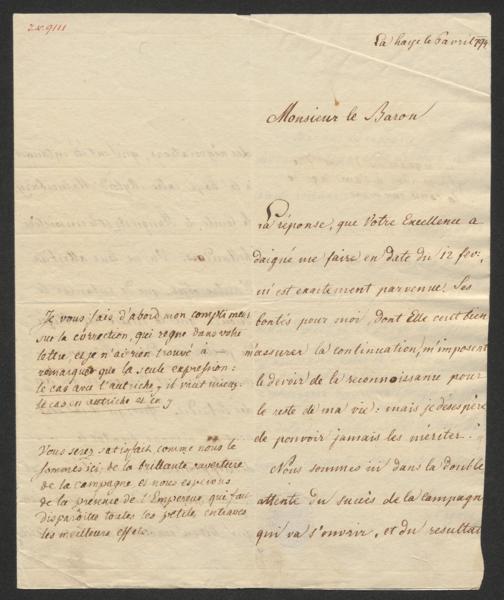 La haye le 6 avril 794
Monsieur le Baron
La réponse, que Votre Excellence a
daigné me faire en date du 12 fevr.
m'est exactement parvenue. Ses
bontés pour moi, dont Elle veut bien
m'assurer la continuation, m'imposent
le devoir de la reconnoissance pour
le reste de ma vie: mais je désespère
de pouvoir jamais les mériter.
Nous sommes ici dans la double
attente du succès de la campagne
qui va s'ouvrir, et du resultat
Je vous fais d'abord mon compliment
sur la correction, qui regne dans votre
lettre, et je n'ai rien trouvé à
remarquer que la seule expression:
le cas avec l'autriche, il vaut mieux:
le cas en autriche
Vous serez satisfait comme nous le
sommes ici, de la brillante ouverture
de la campagne, et nous esperons
de la présence de l'Empereur, qui fait
disparoitre toutes les petites entraves
les meilleurs effets.